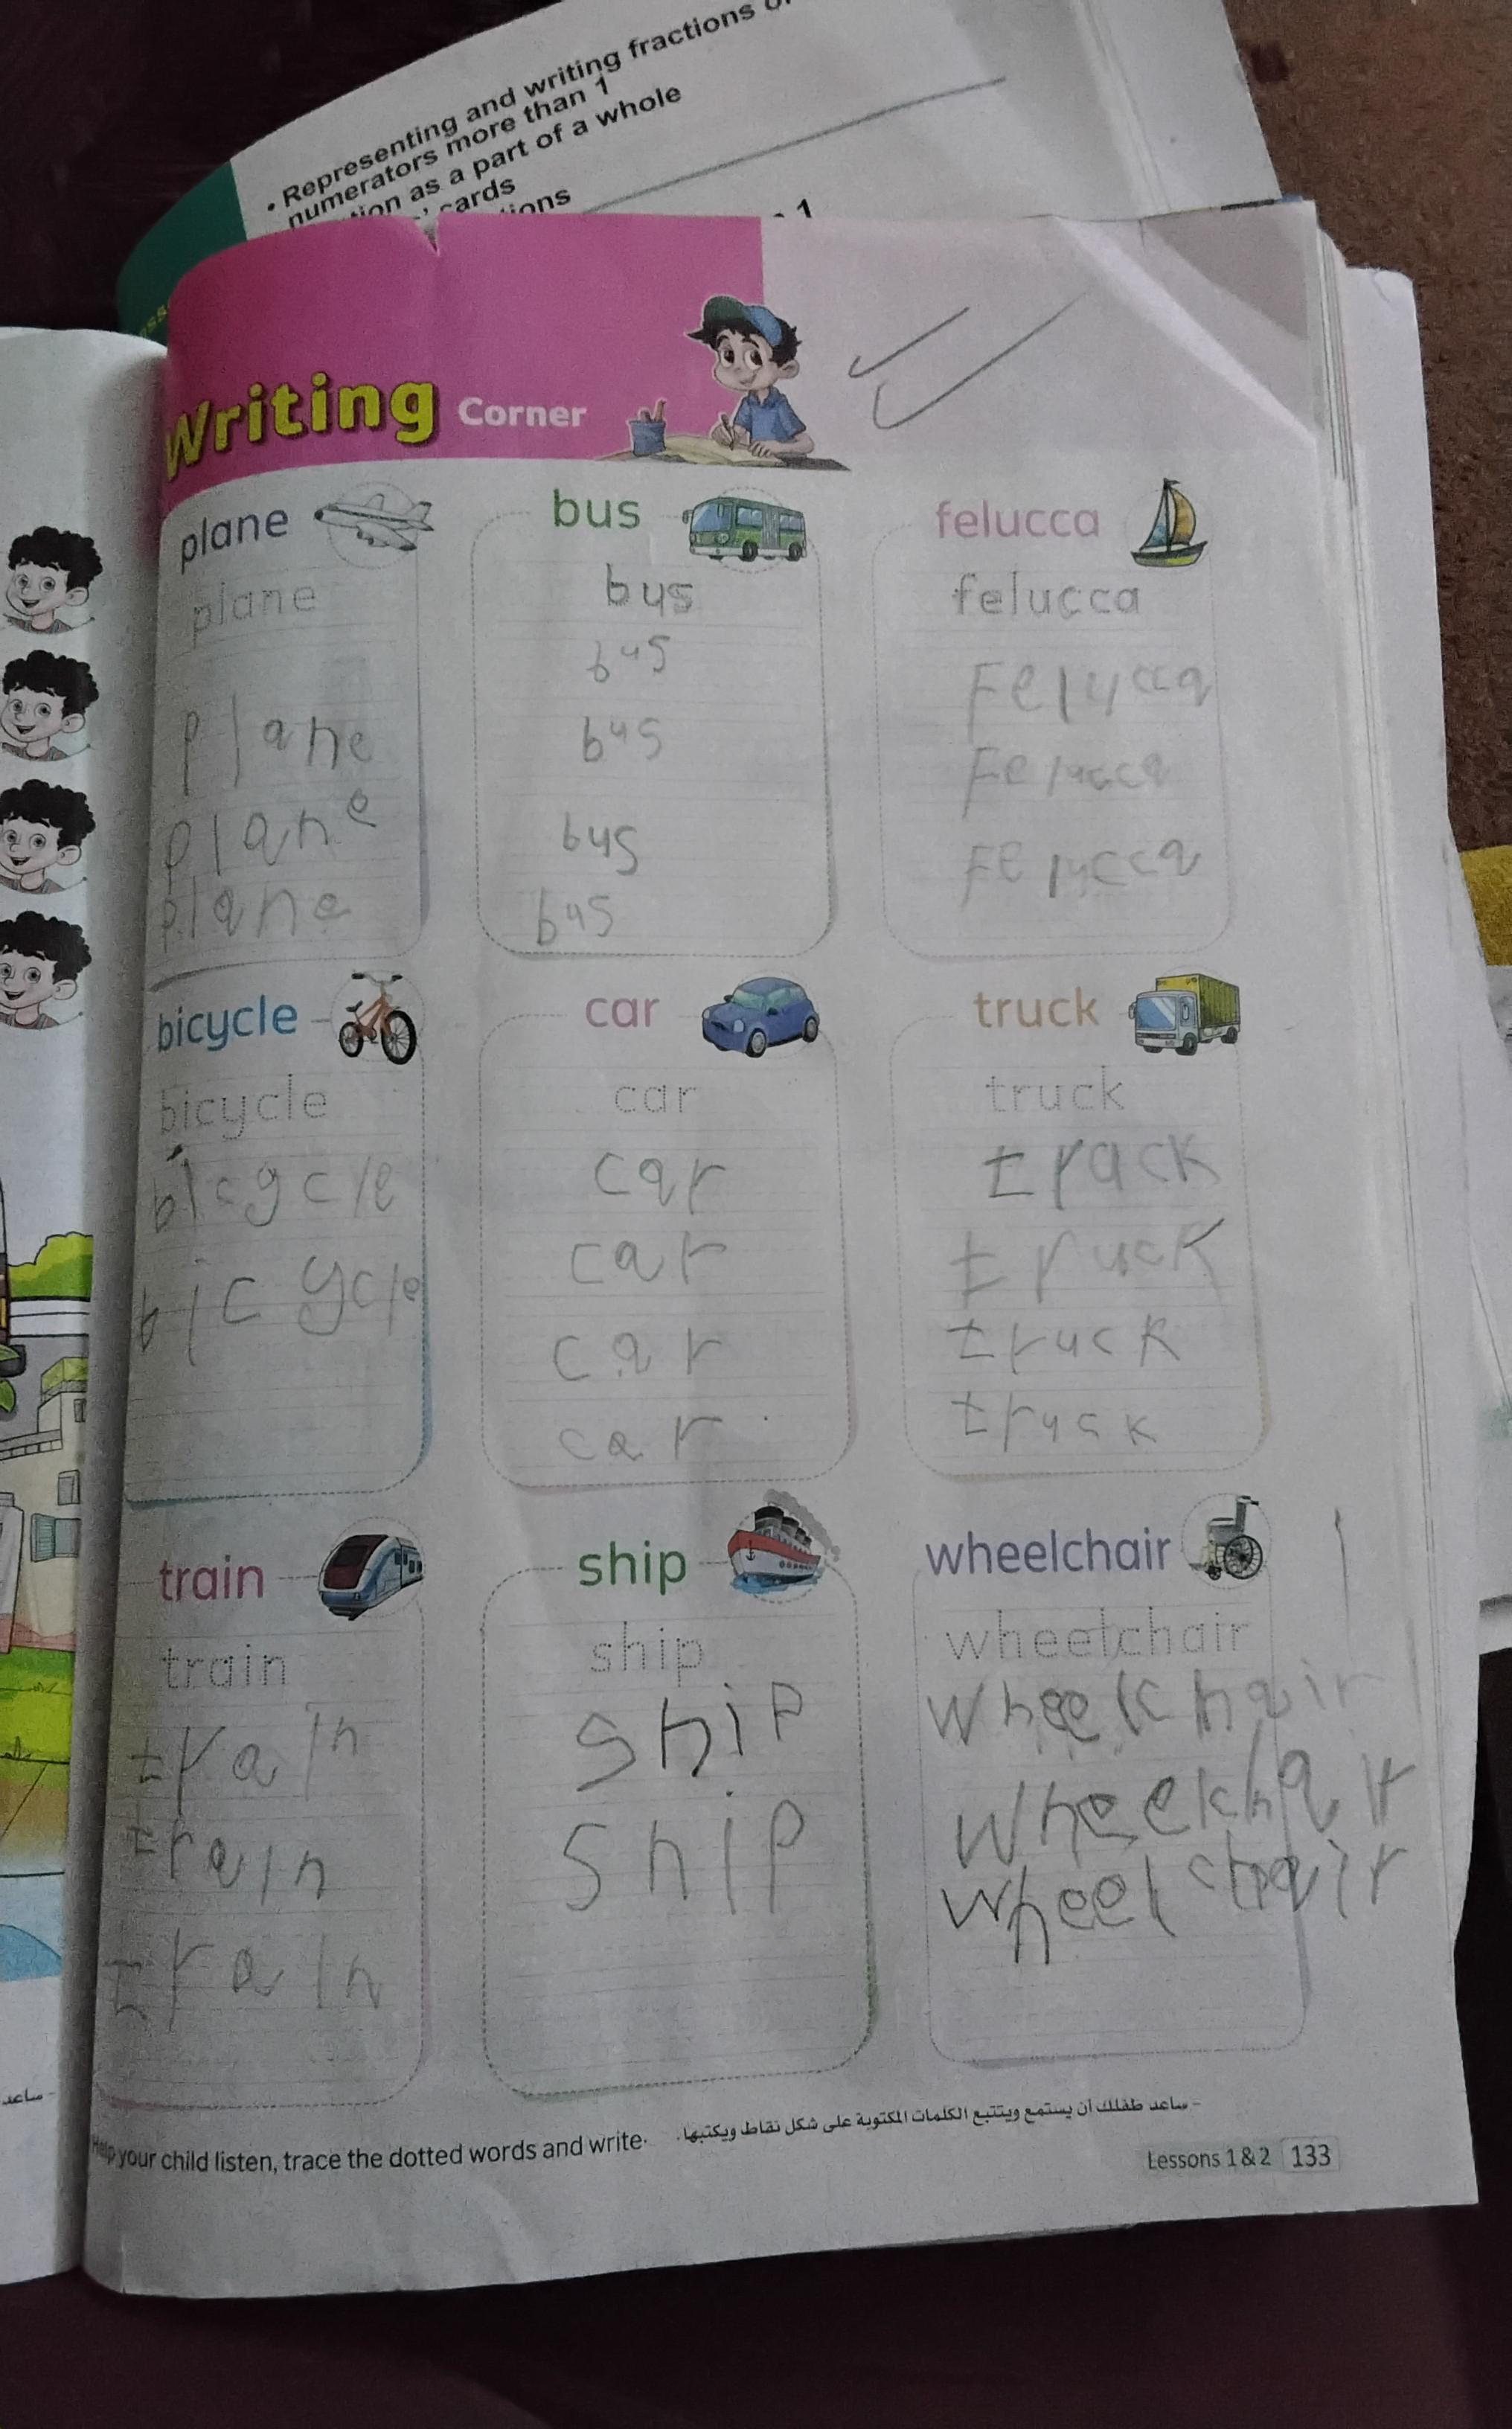 • Representing and writing fractions
numerators more than 1
as a part of a whole
cards
1
Writing Corner
plane
plane
plane
plane
plane
bus
bus
bus
bus
bus
bus
felucca
felucca
Felucca
Felucca
Felucca
bicycle
bicycle
bicgcle
bicycle
car
car
car
car
car
car
truck
truck
track
truck
truck
truck
train
train
train
train
train
ship
ship
ship
ship
wheelchair
wheelchair
wheelchair
wheelchair
wheelchair
- ساعد طفلك أن يستمع ويتتبع الكلمات المكتوبة على شكل نقاط ويكتبها.
Help your child listen, trace the dotted words and write.
Lessons 1 & 2 133
- ساعد